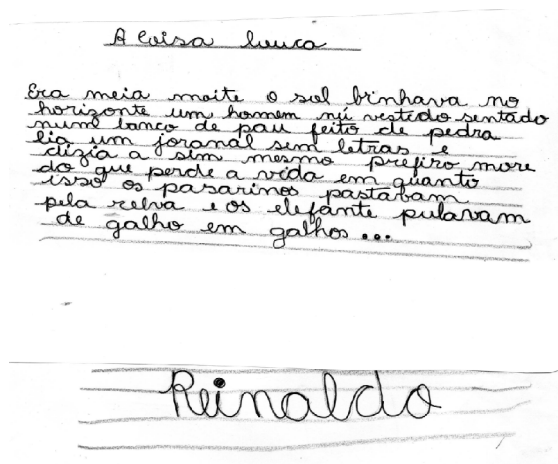 A Coisa louca
Era meia moite o sol brinhava no
horizonte um homem nú vestido sentado
num banco de pau feito de pedra
lia um joranal sem letras e
dizia a sim mesmo prefiro more
do que perde a vida em quanto
isso os pasarinos pastavam
pela relva e os elefante pulavam
de galho em galhos...
Reinaldo